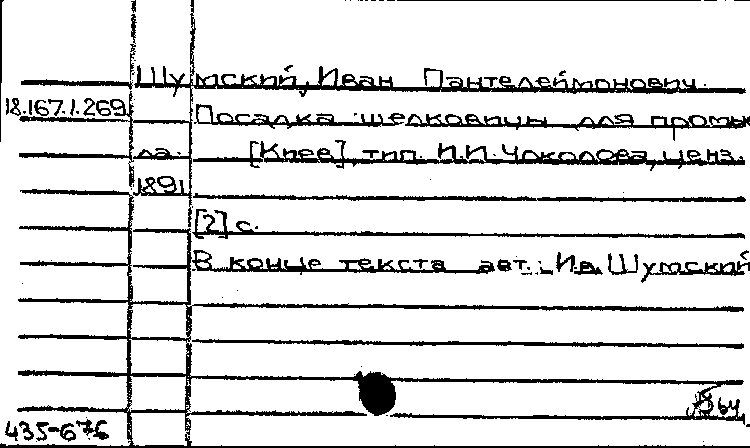 Шумский, Иван Пантелеймонович.
18.167.1.269 Посадка шелковицы для промыс
ла. [Киев], тип. И.И. Чоколова, ценз.
1891.
[2] с.
В конце текста авт.: Ив. Шумский
64
435-676